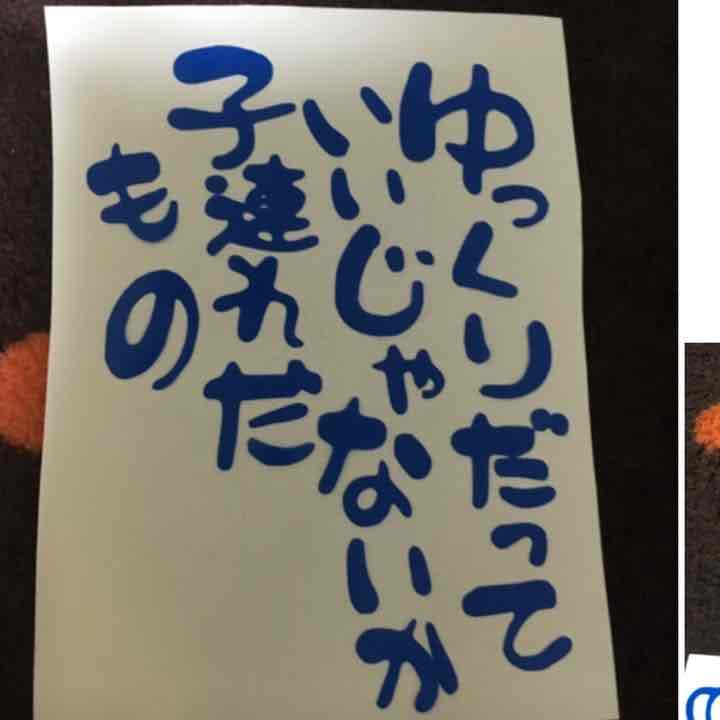 ゆっくりだって
いいじゃないか
子連れだ
もの